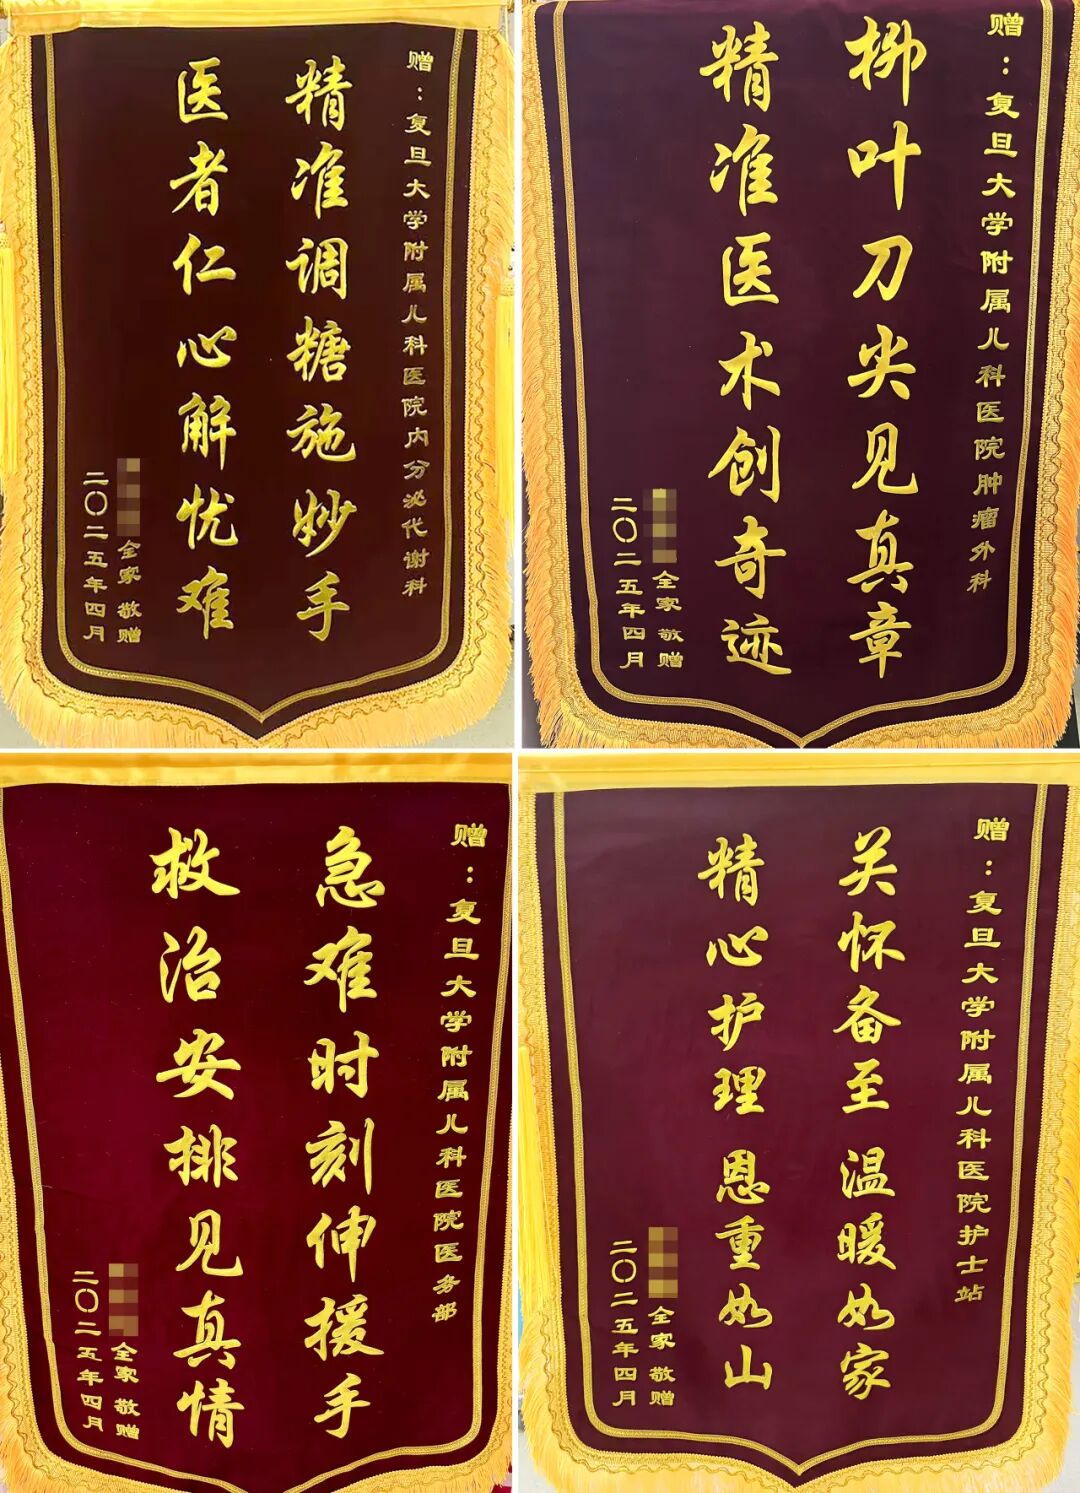 赠：复旦大学附属儿科医院内分泌代谢科
精准调糖施妙手
医者仁心解忧难
全家 敬赠
二〇二五年四月
赠：复旦大学附属儿科医院肿瘤外科
柳叶刀尖见真章
精准医术创奇迹
全家 敬赠
二〇二五年四月
赠：复旦大学附属儿科医院医务部
急难时刻伸援手
救治安排见真情
全家 敬赠
二〇二五年四月
赠：复旦大学附属儿科医院护士站
关怀备至 温暖如家
精心护理 恩重如山
全家 敬赠
二〇二五年四月